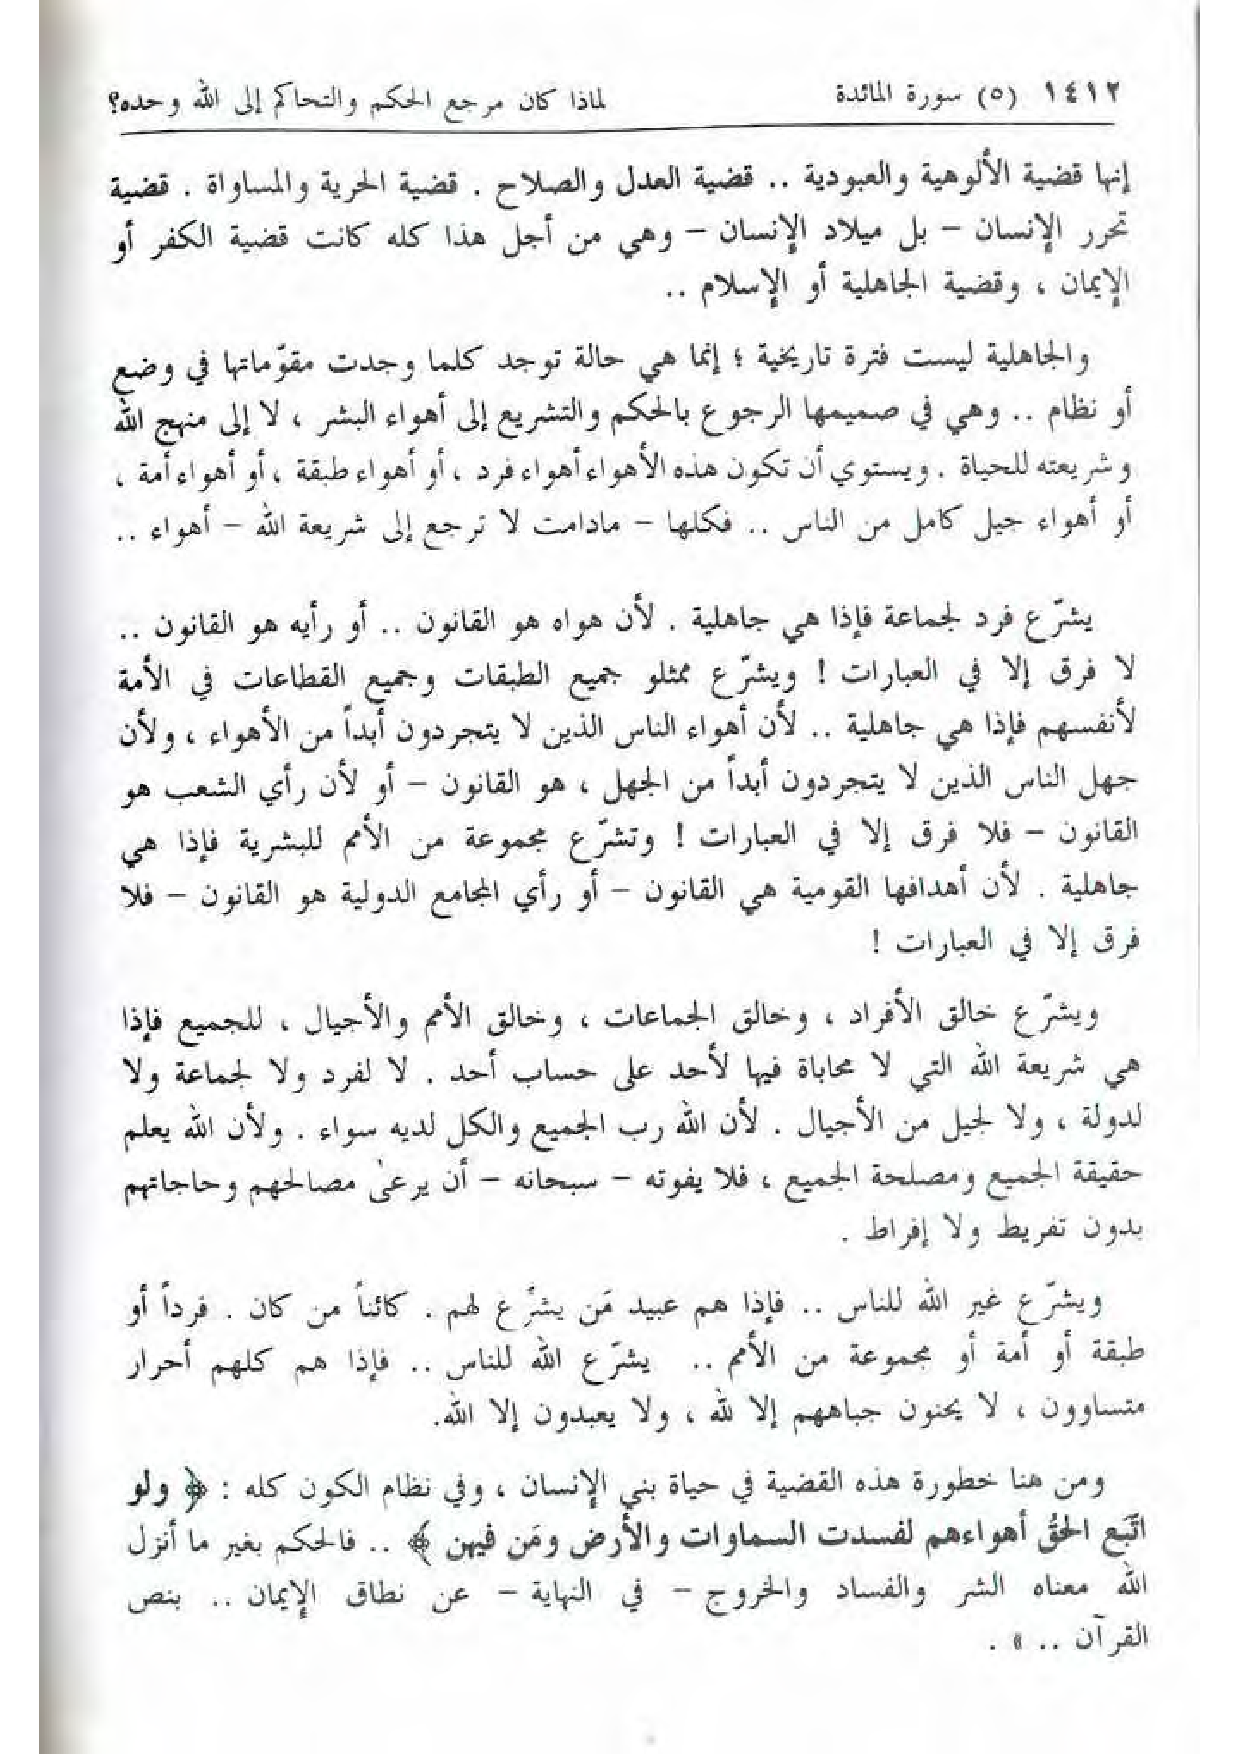 ١٤١٢ (٥) سورة المائدة لماذا كان مرجع الحكم والتحاكم إلى الله وحده؟
إنها قضية الألوهية والعبودية .. قضية العدل والصلاح . قضية الحرية والمساواة . قضية
تحرر الإنسان – بل ميلاد الإنسان – وهي من أجل هذا كله كانت قضية الكفر أو
الإيمان ، وقضية الجاهلية أو الإسلام ..
والجاهلية ليست فترة تاريخية ؛ إنما هي حالة توجد كلما وجدت مقوّماتها في وضع
أو نظام .. وهي في صميمها الرجوع بالحكم والتشريع إلى أهواء البشر ، لا إلى منهج الله
وشريعته للحياة . ويستوي أن تكون هذه الأهواء أهواء فرد ، أو أهواء طبقة ، أو أهواء أمة ،
أو أهواء جيل كامل من الناس .. فكلها – مادامت لا ترجع إلى شريعة الله – أهواء ..
يشرّع فرد لجماعة فإذا هي جاهلية . لأن هواه هو القانون .. أو رأيه هو القانون ..
لا فرق إلا في العبارات ! ويشرّع ممثلو جميع الطبقات وجميع القطاعات في الأمة
لأنفسهم فإذا هي جاهلية .. لأن أهواء الناس الذين لا يتجردون أبداً من الأهواء ، ولأن
جهل الناس الذين لا يتجردون أبداً من الجهل ، هو القانون – أو لأن رأي الشعب هو
القانون – فلا فرق إلا في العبارات ! وتشرّع مجموعة من الأمم للبشرية فإذا هي
جاهلية . لأن أهدافها القومية هي القانون – أو رأي المجامع الدولية هو القانون – فلا
فرق إلا في العبارات !
ويشرّع خالق الأفراد ، وخالق الجماعات ، وخالق الأمم والأجيال ، للجميع فإذا
هي شريعة الله التي لا محاباة فيها لأحد على حساب أحد . لا لفرد ولا لجماعة ولا
لدولة ، ولا لجيل من الأجيال . لأن الله رب الجميع والكل لديه سواء . ولأن الله يعلم
حقيقة الجميع ومصلحة الجميع ، فلا يفوته – سبحانه – أن يرعىٰ مصالحهم وحاجاتهم
بدون تفريط ولا إفراط .
ويشرّع غير الله للناس .. فإذا هم عبيد مَن يشرِّع لهم . كائناً من كان . فرداً أو
طبقة أو أمة أو مجموعة من الأمم .. يشرّع الله للناس .. فإذا هم كلهم أحرار
متساوون ، لا يحنون جباههم إلا لله ، ولا يعبدون إلا الله.
ومن هنا خطورة هذه القضية في حياة بني الإنسان ، وفي نظام الكون كله : ﴿ ولو
اتّبَع الحقُّ أهواءهم لفسدت السماوات والأرض ومَن فيهن ﴾ .. فالحكم بغير ما أنزل
الله معناه الشر والفساد والخروج – في النهاية – عن نطاق الإيمان .. بنص
القرآن .. » .